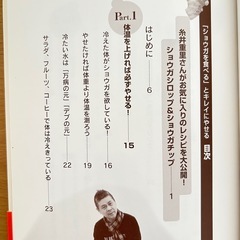 「ショウガを食べる」とキレイにやせる 目次
糸井重里さんがお気に入りのレシピを大公開！
ショウガシロップ&ショウガチップ 1
はじめに 6
Part.1
体温を上げれば必ずやせる！ 15
冷えた体がショウガを欲している 16
やせたければ体重より体温を測ろう 19
冷たい水は「万病の元」「デブの元」 22
サラダ、フルーツ、コーヒーで体は冷えきっている 23